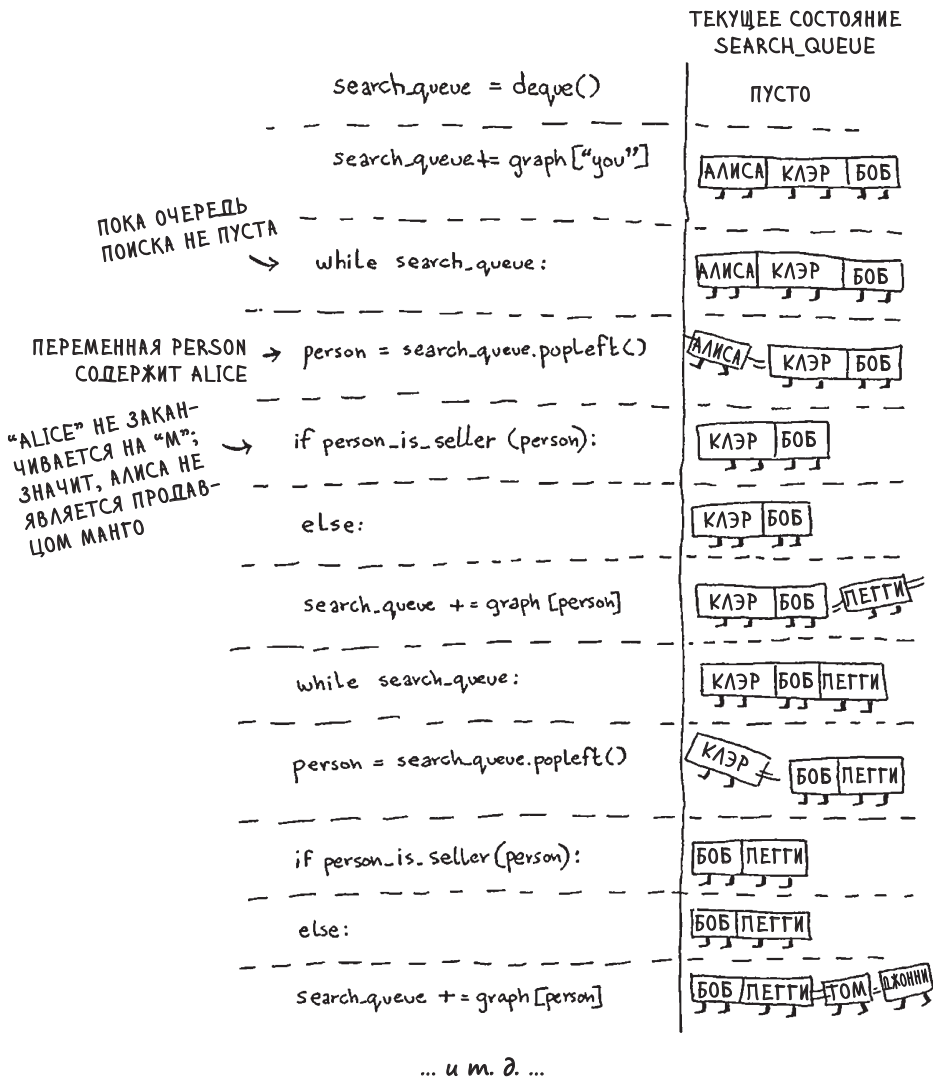 ТЕКУЩЕЕ СОСТОЯНИЕ
SEARCH_QUEUE
search_queue = deque()
ПУСТО
search_queue += graph["you"]
АЛИСА КЛЭР БОБ
ПОКА ОЧЕРЕДЬ
ПОИСКА НЕ ПУСТА
while search_queue:
АЛИСА КЛЭР БОБ
ПЕРЕМЕННАЯ PERSON
СОДЕРЖИТ ALICE
person = search_queue.popleft()
АЛИСА КЛЭР БОБ
"ALICE" НЕ ЗАКАН-
ЧИВАЕТСЯ НА "М";
ЗНАЧИТ, АЛИСА НЕ
ЯВЛЯЕТСЯ ПРОДАВ-
ЦОМ МАНГО
if person_is_seller (person):
КЛЭР БОБ
else:
КЛЭР БОБ
search_queue += graph [person]
КЛЭР БОБ ПЕГГИ
while search_queue:
КЛЭР БОБ ПЕГГИ
person = search_queue.popleft()
КЛЭР БОБ ПЕГГИ
if person_is_seller (person):
БОБ ПЕГГИ
else:
БОБ ПЕГГИ
search_queue += graph [person]
БОБ ПЕГГИ ТОМ ДЖОННИ
... и т. д. ...